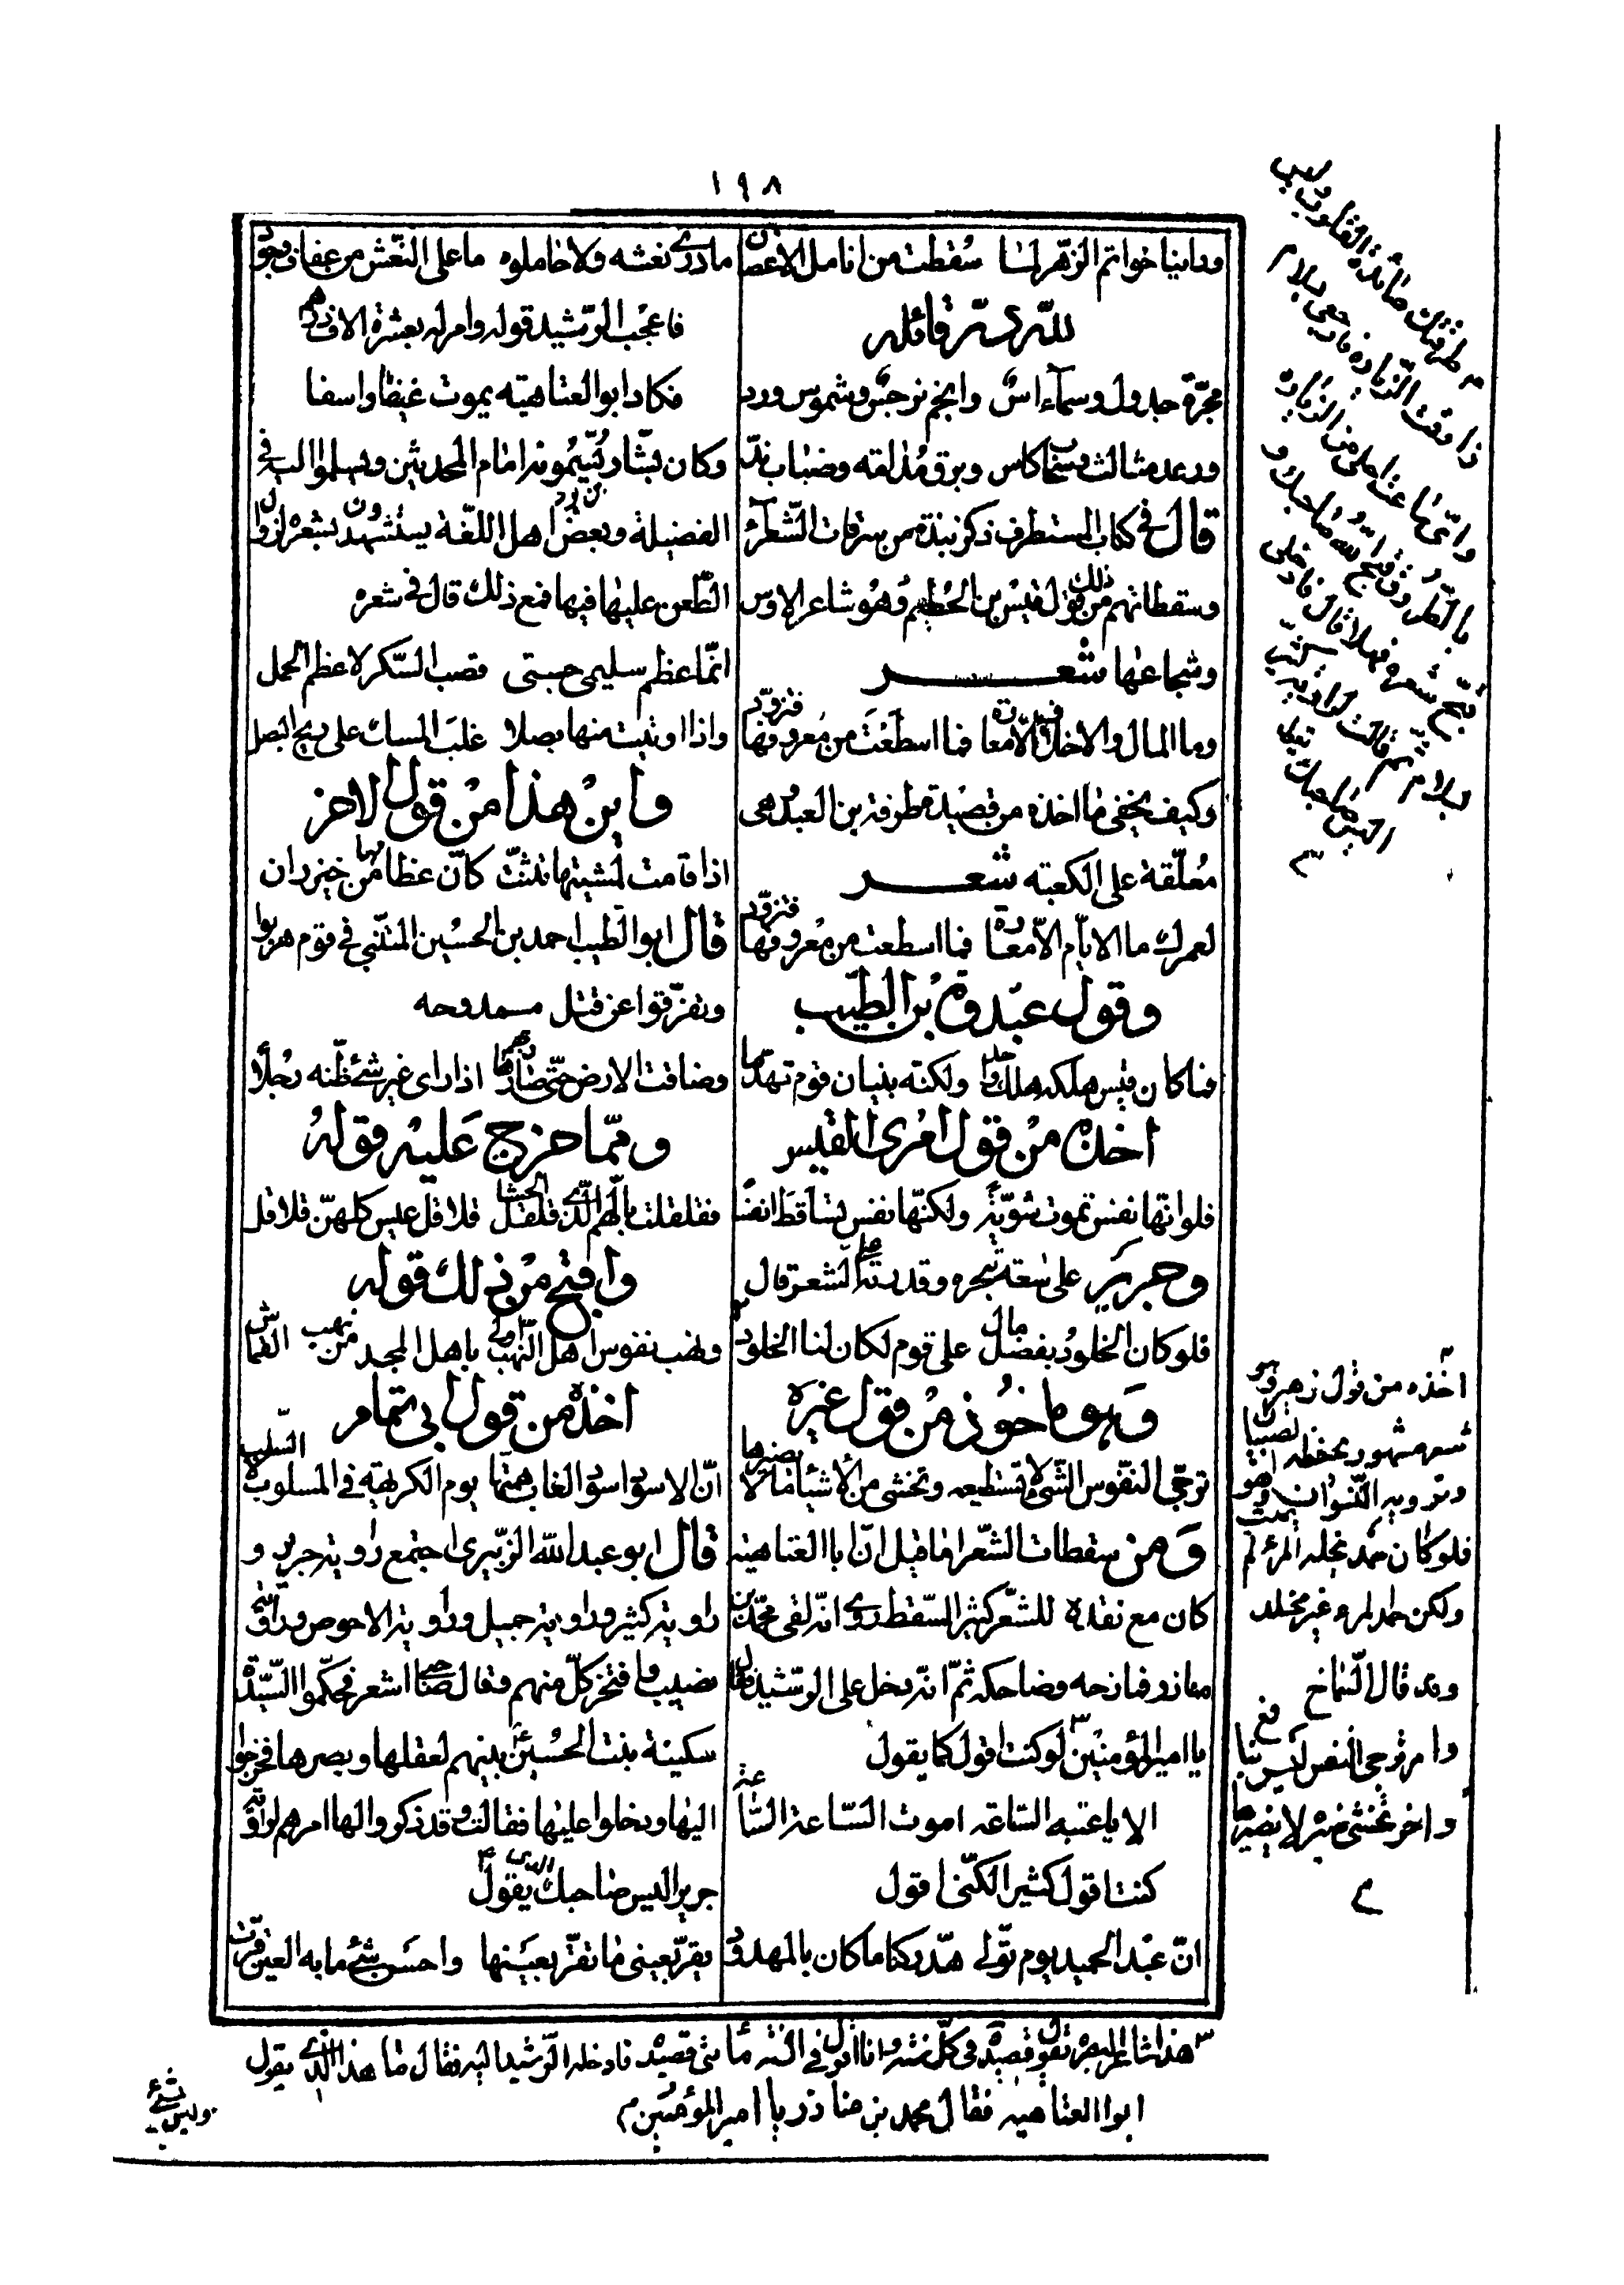 ١٩٨
ورابنا خواتم الزهر لما سقطت من انامل الاغصان
لله درّ قائله
مجرّة جدول وسماء اس وانجم نرجس وشموس ورد
ورعد مثالث وسحاب كاس وبرق مدامة وضباب ند
قال في كتاب المستطرف ذكر نبذة من سرقات الشعراء
وسقطاتهم من ذلك قول قيس بن الخطيم وهو شاعر الاوس
وشجاعها شعر
وما المال والاخلاق الا معارة فما اسطعت من معروفها فتزود
وكيف يخفى ما اخذه من قصيدة طرفة بن العبد وهى
معلّقة على الكعبة شعر
لعمرك ما الايّام الا معارة فما اسطعت من معروفها فتزود
وقول عبدة بن الطبيب
فما كان قيس هلكه هلك واحد ولكنه بنيان قوم تهدما
اخذه من قول امرئ القيس
فلو انها نفس تموت سويّة ولكنها نفس تساقط انفسا
وجرير على سعة تبحره وقدرته على الشعر قال
فلو كان الخلود بفضل مال على قوم لكان لنا الخلود
وهو ماخوذ من قول غيره
ترجّى النفوس الشئ لا تستطيعه وتخشى من الاشياء ما لا يضيرها
ومن سقطات الشعرا ما قيل انّ ابا العتاهية
كان مع نقده للشعر كثير السقط روى انه لقى محمد بن
مناذر فمازحه وضاحكه ثمّ انه دخل على الرشيد فقال
يا امير المؤمنين لو كنت اقول كما يقول
الا يا عتبه الساعه اموت الساعة الساعة
كنت اقول كثيرا لكنّى اقول
انّ عبد الحميد يوم تولى هدّ ركنا ما كان بالمهدود
ما درى نعشه ولا حاملوه ما على النعش من عفاف وجود
فاعجب الرشيد قوله وامر له بعشرة الاف درهم
فكاد ابو العتاهية يموت غيظا واسفا
وكان بشار بن برد يسمونه امام المحدثين ويسلموا اليه فى
الفضيلة وبعض اهل اللغة يستشهدون بشعره لزوال
الطعن عليها فيها فمع ذلك قال فى شعره
انّما عظم سليمى حبتى قصب السكر لا عظم الجمل
واذا ادنيت منها بصلا غلب المسك على ريح البصل
واين هذا من قول الاخر
اذا قامت لمشيتها تثنّت كانّ عظامها من خيزران
قال ابو الطيب احمد بن الحسين المتنبى فى قوم هربوا
وتفرّقوا عن قتل ممدوحه
وضاقت الارض حتى صار هاربهم اذا راى غير شئ ظنه رجلا
وممّا خرج عليه قوله
فقلقلت بالهم الذى قلقل الحشا قلاقل عيس كلهنّ قلاقل
واقبح من ذلك قوله
ونهب نفوس اهل النهب اولى باهل المجد من نهب القماش
اخذه من قول ابى تمام
انّ الاسود اسود الغاب همتها يوم الكريهة فى المسلوب لا السلب
قال ابو عبد الله الزبيرى اجتمع راوية جرير و
راوية كثير وراوية جميل وراوية الاحوص وراوية
نصيب فافتخر كلّ منهم وقال صاحبى اشعر فحكموا السيدة
سكينة بنت الحسين بينهم لعقلها وبصرها فخرجوا
اليها ودخلوا عليها فقالت وقد ذكروا لها امرهم لراوية
جرير اليس صاحبك الذى يقول
يقرّ بعينى ما تقرّ بعينها واحسن شئ ما به العين قرّت
طرقتك صائدة القلوب وليس
ذا وقت الزيارة فارجعى بسلام
اخذه من قول زهير وهو
شعر مشهور يحفظه الصبيان
وترويه النسوان وهو
فلو كان حمد يخلد المرء لم يمت
ولكن حمد المرء غير مخلد
وقد قال الشماخ
وامر ترجى النفس ليس بنافع
واخر تخشى ضيره لا يضيرها
هذا شاعر البصرة يقول قصيدة فى كلّ سنة وانا اقول فى السنة مائتى قصيدة فادخله الرشيد اليه فقال ما هذا الذى يقول
ابو العتاهية فقال محمد بن مناذر يا امير المؤمنين
وليس شئ